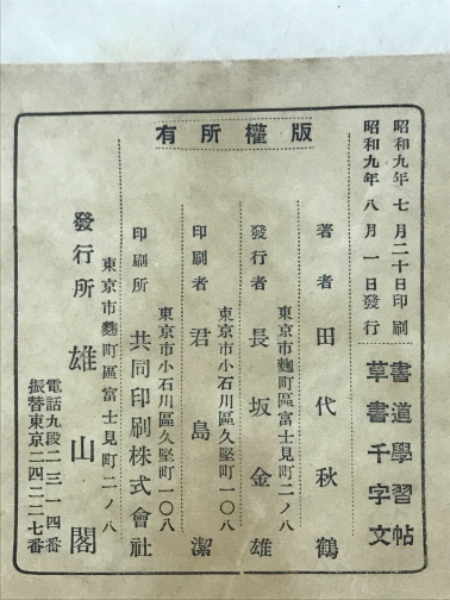 昭和九年七月二十日印刷
昭和九年八月一日發行
書道學習帖
草書千字文
版權所有
著者 田代秋鶴
東京市麴町區富士見町二ノ八
發行者 長坂金雄
東京市小石川區久堅町一〇八
印刷者 君島潔
東京市小石川區久堅町一〇八
印刷所 共同印刷株式會社
東京市麴町區富士見町二ノ八
發行所 雄山閣
電話九段二三一四番
振替東京二四二二七番